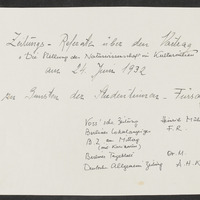 Zeitungs - Referate über den Vortrag
"Die Stellung der Naturwissenschaft im Kulturleben
den 24. Juni 1932
zu Gunsten der Studentinnen - Fürso
Voss'sche Zeitung
Berliner Lokalanzeiger F. R.
B. Z. am Mittag
Berliner Tageblatt Dr. M.
Deutsche Allgemeine Zeitung A. H. K